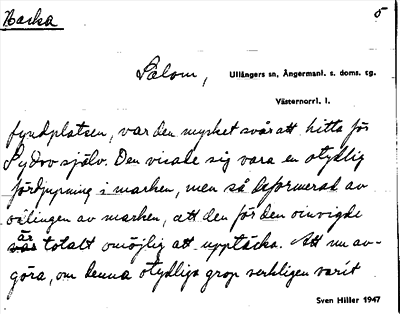 Nacka 5
Salom, Ullångers sn, Ångermanl. s. doms. tg.
Västernorrl. l.
fyndplatsen, var den mycket svår att hitta för
Sydov själv. Den visade sig vara en otydlig
fördjupning i marken, men så deformerad av
odlingen av marken, att den för den oinvigde
är totalt omöjlig att upptäcka. Att nu av-
göra, om denna otydliga grop verkligen varit
Sven Hiller 1947